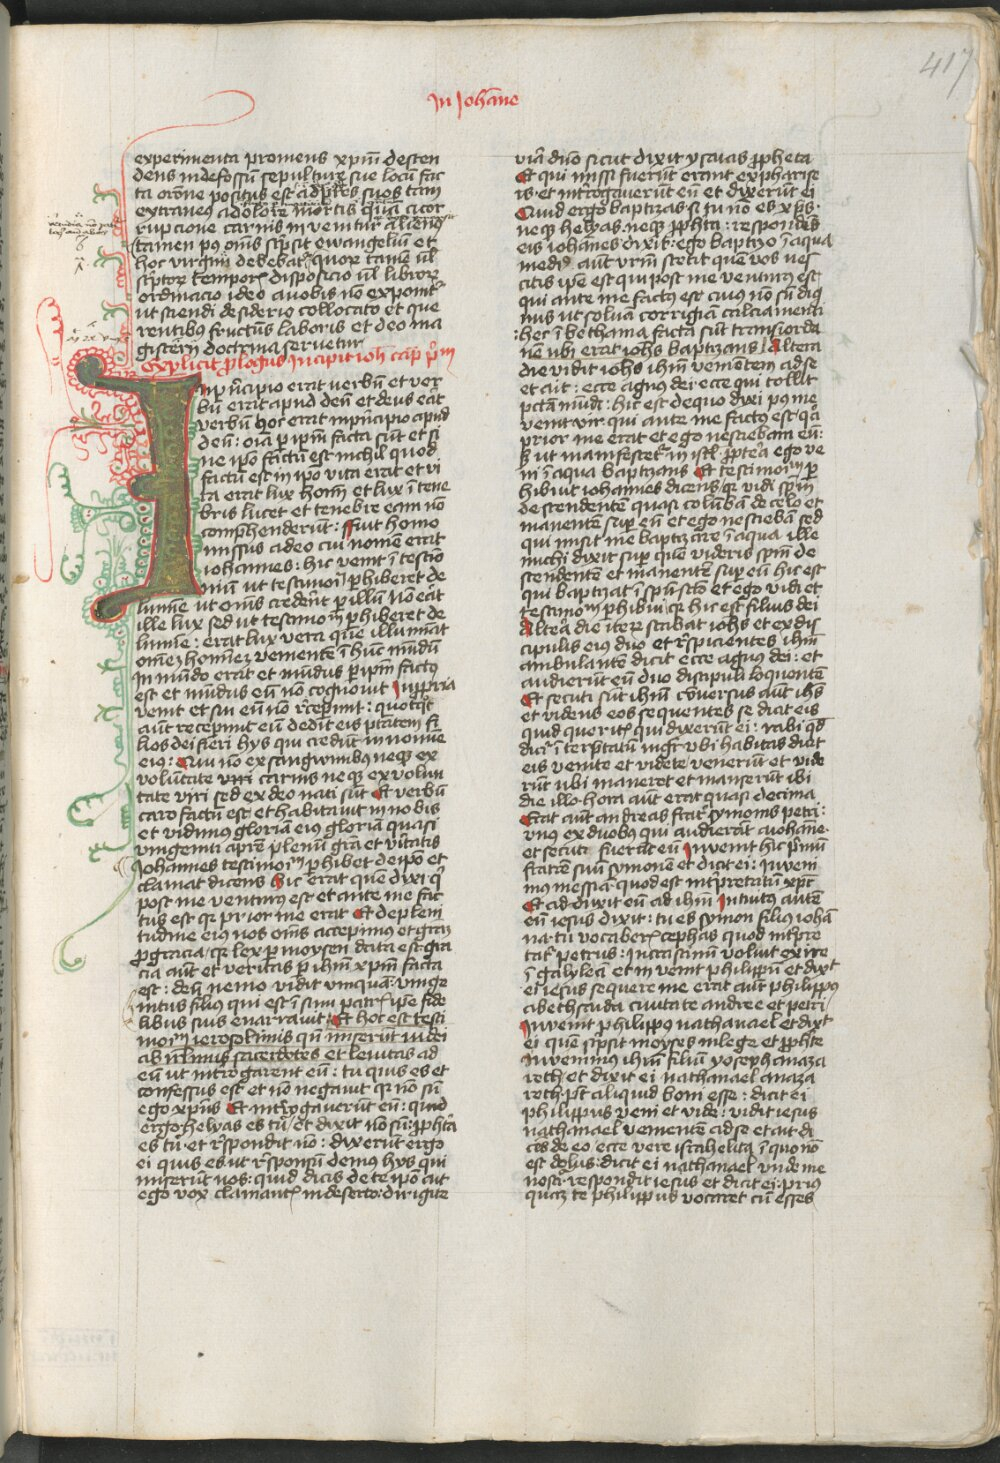 417
In Johāne
experimenta promens xpm̄ descen
dens in defossū sepulturę sue locū fac
ta oron̄e positus est ad pr̄es suos tam
extraneꝰ a dolore mortis qūa a cor
rupcione carnis in venitur alienꝰ
tamen pꝰ om̄s scpsit ewangeliū et
hoc virgini debebatʳ quorꝫ tamē ul̄
scptorꝫ temporꝫ disposicio ul̄ librorꝫ
ordinacio ideo a nobis nō exponitʳ
ut sciendi desiderio collocato et que
rentibus fructus laboris et deo ma
gisterij doctrina servetur
Explicit ꝓlogus Incipit ioh̄ cap̄ pm̄
In pⁱncipio erat uerbū et ver
bū erat apud deū et deus erat
verbū hoc erat in pⁱncipio apud
deū: oīa ꝑ ip̄m facta sūt et si
ne ip̄o factū est nichil quod
factū est in ip̄o vita erat et vi
ta erat lux hom̄ et lux ī tene
bris lucet et tenebre eam nō
comp̄henderūt: Fuit homo
missus a deo cui nomē erat
iohannes: hic venit ī testīo
niū ut testimoīm ꝑhiberet de
lumīe ut om̄s crederēt ꝑ illū nō erat
ille lux sed ut testimoīm ꝑhiberet de
lumīe: erat lux vera que illumīat
om̄eꝫ homīeꝫ veniente ī hūc mūdū
In mūdo erat et mūdus ꝑ ip̄m factꝰ
est et mūdus eū nō cognouit In ꝓpria
venit et sui eū nō rᵉceperūt: quotqᵒt
aūt receperūt eū dedit eis ptātem fi
lios dei fieri hys qui credūt in nomīe
eiꝰ: Qui nō ex sangwinibus neqꝫ ex
volūtate viri carnis neqꝫ ex volun
tate viri sed ex deo nati sūt Et verbū
caro factū est et habitauit in nobis
et vidimus gloriā eiꝰ gloriā quasi
vnigeniti a pr̄e plenū gra et vⁱtatis
Johannes testimoīm ꝑhibet de ip̄o et
clamat dicens hic erat quē dixi qⁱ
post me venturꝰ est et ante me fac
tus est qꝛ prior me erat Et de pleni
tudine eiꝰ nos om̄s accepimus et graꝫ
ꝓ gracia/ qꝛ lex ꝑ moysen data est gra
cia aūt et veritas ꝑ ih̄m xp̄m facta
est: deū nemo vidit vmquā: vnige
nitus filius qui est ī sinu patrꝭ ip̄e fide
libus suis enarrauit: Et hoc est testi
moīm ierosolimis qn̄ miserūt iudei
ab ierl̄imis sacerdotes et leuitas ad
eū ut int̄rogarent eū: tu quis es et
confessus est et nō negauit qꝛ nō sū
ego xpūs Et int̄rogauerūt eū: quid
ergo helyas es tu/ et dixit nō sū: ꝓph̄ta
es tu: et rᵉspondit nō: dixerūt ergo
ei quis es ut rᵉsponsū demus hys qui
miserūt nos: quid dicis de te ip̄o ait
ego vox clamantꝭ in deserto: dirigite
viā dn̄o sicut dixit ysaias ꝓpheta
Et qui missi fuerūt erant ex pharise
is et int̄rogauerūt eū et dixerūt ei
Quid ergo baptizas si tu nō es xp̄s
neqꝫ helyas neqꝫ ꝓph̄ta: respondēs
eis iohānes dixit: ego baptizo ī aqua
mediꝰ aūt vr̄m stetit quē vos nes
citis ip̄e est qui post me venturꝰ est
qui ante me factus est cuiꝰ nō sū dig
nus ut soluā corrigiā calciamenti
: hec ī bethania facta sūt trans iorda
nē vbi erat ioh̄s baptizans Altera
die vidit ioh̄s ih̄m venientem ad se
et ait: ecce agnus dei: ecce qui tollit
pctā mūdi: hic est de quo dixi pꝰ me
venit vir qui ante me factꝰ est qꝛ
prior me erat et ego nesciebam eū:
sꝫ ut manifestetʳ in isrl̄ ꝓpterea ego ve
ni ī aqua baptizans Et testimoīm ꝑ
hibuit iohannes dicens qꝛ vidi sp̄m
descendentē quasi colūbam de celo et
manentē sup eū et ego nesciebā sed
qui misit me baptizare ī aqua ille
michi dixit sup quē videris sp̄m de
scendentē et manentē sup eū hic est
qui baptizat ī sp̄u scō et ego vidi et
testimoīm ꝑhibui qꝛ hic est filius dei
Altera die iterꝫ stabat ioh̄s et ex dis
cipulis eiꝰ duo et rᵉspicientes ih̄m
ambulantē dicit ecce agnus dei: et
audierūt eū duo discipuli loquentē
Et secuti sūt ih̄m Cōuersus aūt ih̄s
et videns eos sequentes se dicit eis
quid queritꝭ qui dixerūt ei: rabi qd̄
dicit ī terp̄tatū mgr̄ vbi habitas dicit
eis venite et videte venerūt et vide
rūt ubi maneret et manserūt ibi
die illo hora aūt erat quasi decima
Erat aūt andreas frat̄ symonis petri:
vnꝰ ex duobꝰ qui audierāt a iohāne
et secuti fuerāt eū Inuenit hic pⁱmū
fratrē suū symonē et dicit ei: Inueni
mꝰ messiā quod est int̄pretatū xpc̄
Et ad dixit eū ad ih̄m Intuitꝰ autē
eū iesus dixit: tu es symon filius iohā
na tu vocaberꝭ cephas quod int̄pre
tatʳ petrus: In crastinū voluit exire
ī galyleā et in venit philippū et dixit
ei iesus sequere me erat aūt philippꝰ
a bethsaida ciuitate andree et petri
Inuenit philippꝰ nathanael et dixit
ei quē scⁱpsit moyses in lege et ꝓph̄te
Inuenimꝰ ih̄m filiū yoseph a naza
reth/ et dixit ei nathanael a naza
reth pōt aliquid boni esse: dicit ei
philippus veni et vide: vidit iesus
nathanael venientē ad se et ait di
cēs de eo ecce vere israhelita ī quo nō
est dolus: dicit ei nathanael vnde me
nosti: respondit iesus et dicit ei: priꝰ
quaꝫ te philippus vocaret cū esses